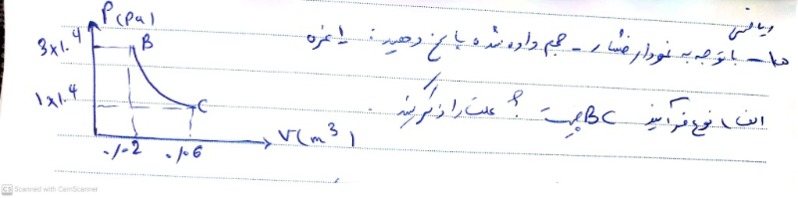 ریاضی
۱۵- با توجه به نمودار فشار - حجم داده شده پاسخ دهید: ۱نمره
الف) نوع فرآیند BC چیست؟ علت را ذکر کنید.
P(pa)
3x1.⁴
B
1x1.⁴
C
V(m³)
./.2
./.6
CS Scanned with CamScanner